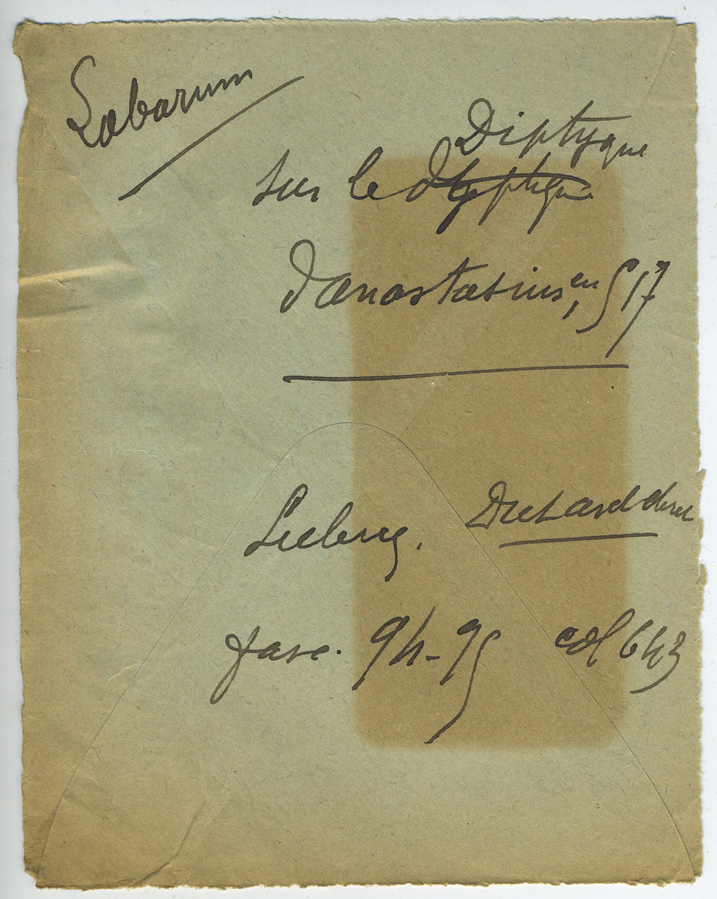 Labarum
Diptyque
sur le
d'anastasius, en 517
Leclercq. Dict arch chret
fasc. 94-95 col 643